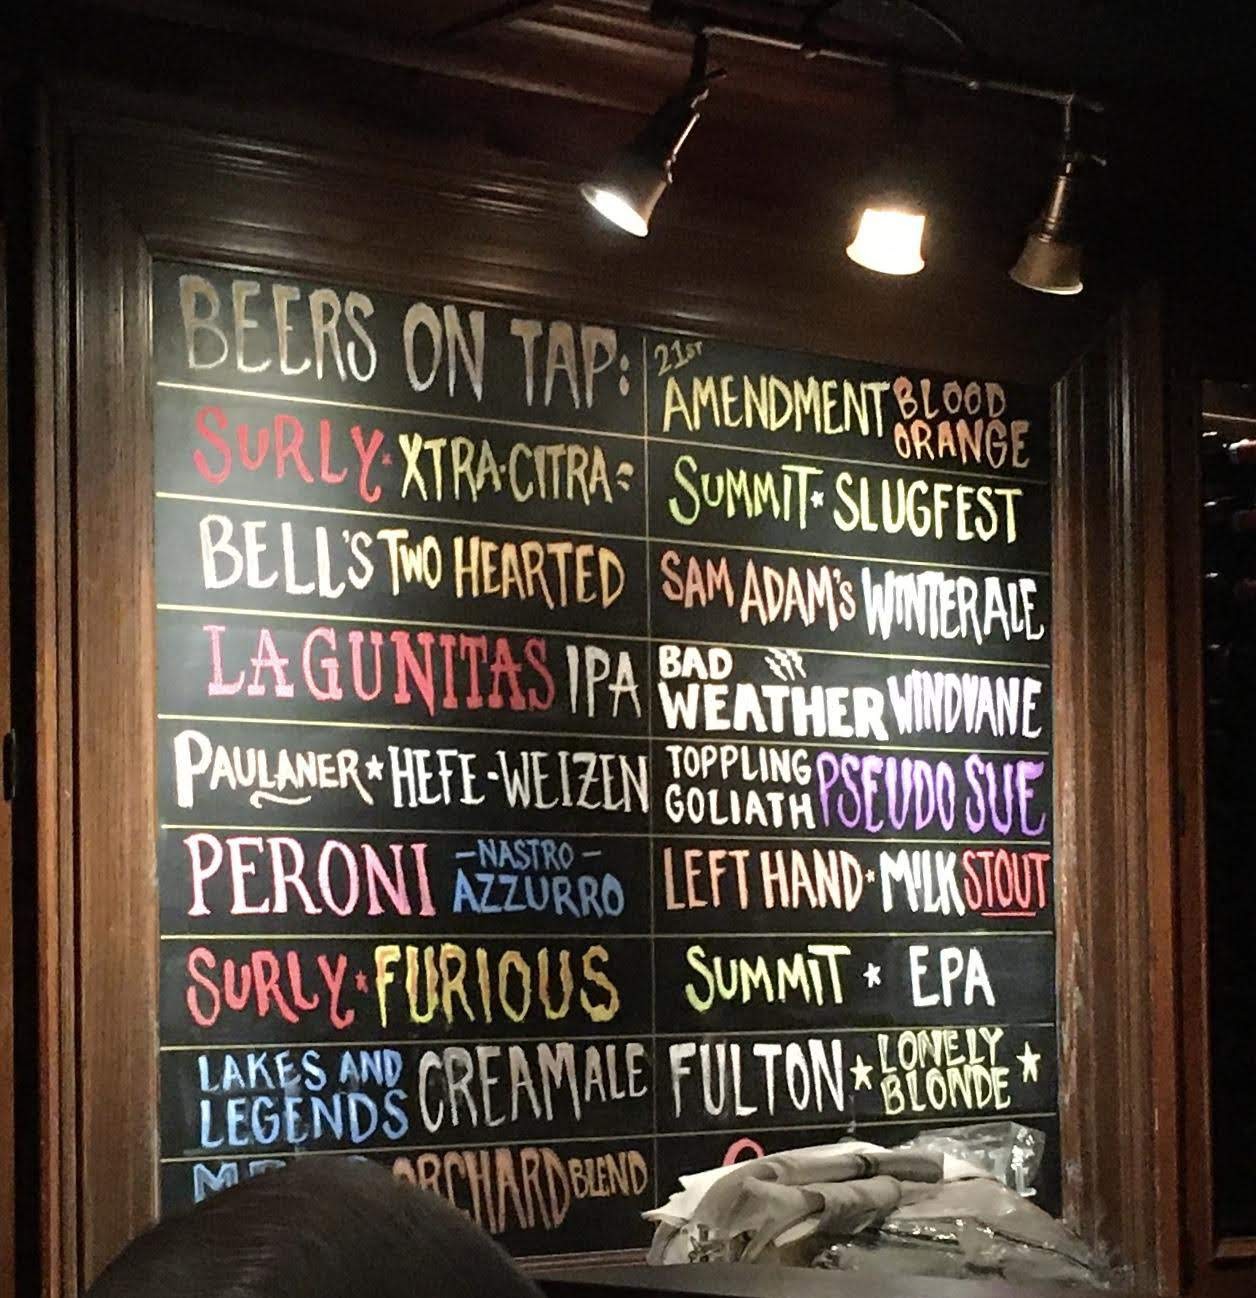 BEERS ON TAP:
SURLY XTRA-CITRA
BELL'S TWO HEARTED
LAGUNITAS IPA
PAULANER HEFE-WEIZEN
PERONI -NASTRO-
AZZURRO
SURLY FURIOUS
LAKES AND
LEGENDS CREAM ALE
ORCHARD BLEND
21ST
AMENDMENT BLOOD
ORANGE
SUMMIT SLUGFEST
SAM ADAM'S WINTER ALE
BAD
WEATHER WINDVANE
TOPPLING
GOLIATH PSEUDO SUE
LEFT HAND MILK STOUT
SUMMIT EPA
FULTON LONELY
BLONDE